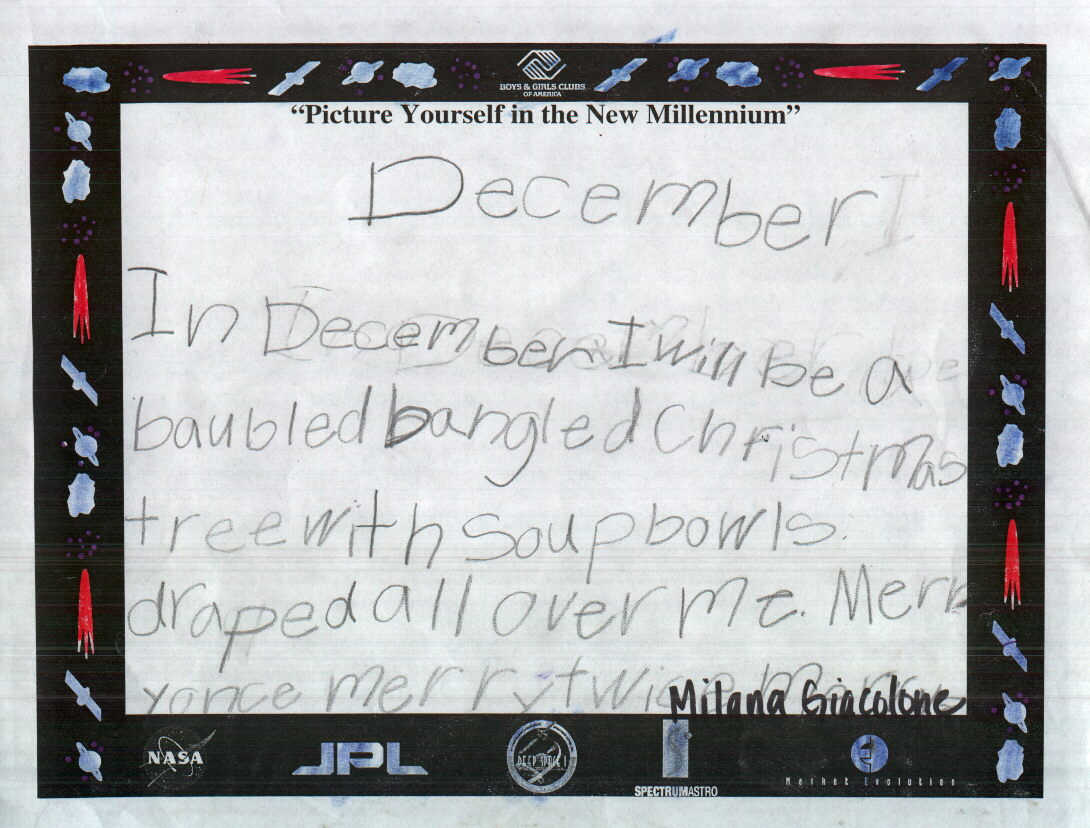 BOYS & GIRLS CLUBS
OF AMERICA
“Picture Yourself in the New Millennium”
December I
In December I will be a
baubled bangled Christmas
tree with soup bowls.
draped all over me. Merr
y once merry twice
Milana Giacolone
NASA JPL DEEP SPACE 1
SPECTRUMASTRO
Market Evolution